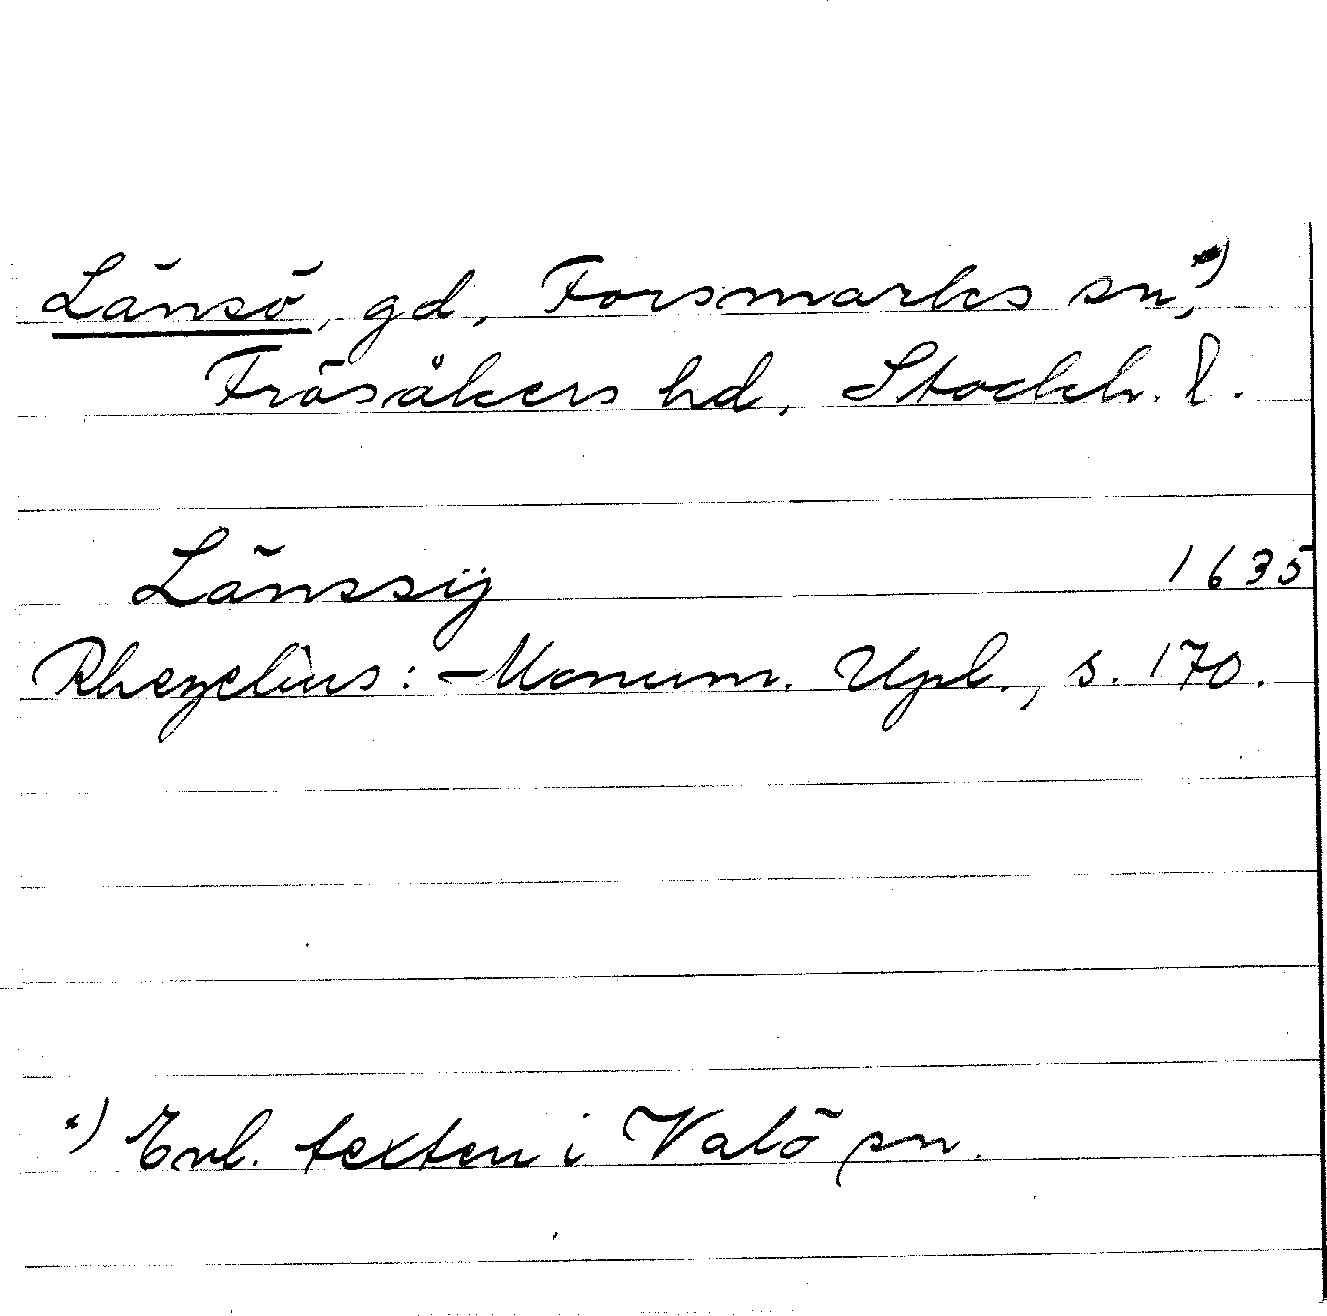 Länsö, gd, Forsmarks sn,*)
Frösåkers hd, Stockh. l.
Länssÿ 1635
Rhezelius: Monum. Upl., s. 170.
*) Enl. texten i Valö sn.